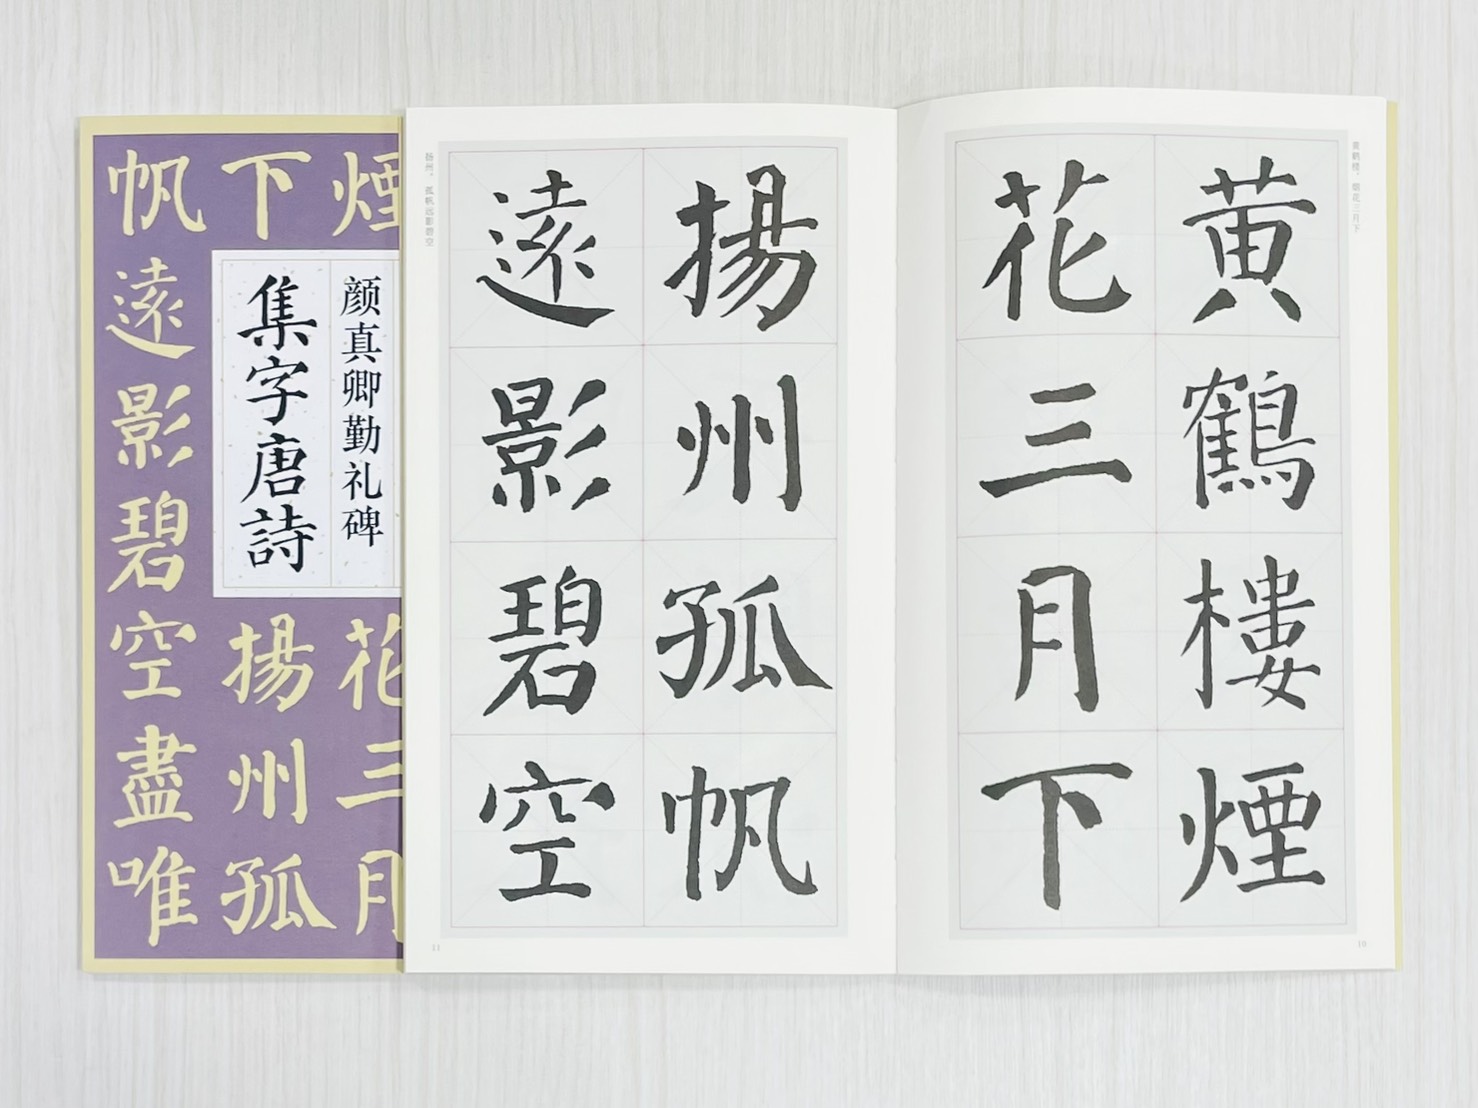 黄鶴樓煙
花三月下
揚州孤帆
遠影碧空
黄鹤楼，烟花三月下
扬州。孤帆远影碧空
10
11
颜真卿勤礼碑
集字唐詩
煙
花三月
下
揚州孤
帆遠影碧空盡唯